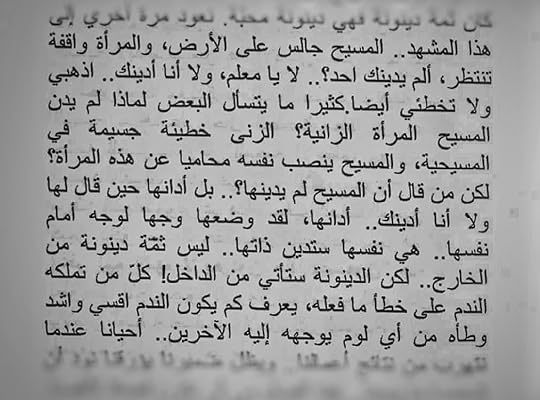 كان ثمة دينونة فهي دينونة محبة. نعود مرة أخري إلى
هذا المشهد.. المسيح جالس على الأرض، والمرأة واقفة
تنتظر، ألم يدينك احد؟.. لا يا معلم، ولا أنا أدينك.. اذهبي
ولا تخطئي أيضا.كثيرا ما يتسأل البعض لماذا لم يدن
المسيح المرأة الزانية؟ الزنى خطيئة جسيمة في
المسيحية، والمسيح ينصب نفسه محاميا عن هذه المرأة؟
لكن من قال أن المسيح لم يدينها؟.. بل أدانها حين قال لها
ولا أنا أدينك.. أدانها، لقد وضعها وجها لوجه أمام
نفسها.. هي نفسها ستدين ذاتها.. ليس ثمّة دينونة من
الخارج.. لكن الدينونة ستأتي من الداخل! كلّ من تملكه
الندم على خطأ ما فعله، يعرف كم يكون الندم اقسي واشد
وطأه من أي لوم يوجهه إليه الآخرين.. أحيانا عندما
نتهرب من نتائج أعمالنا.. ويظل ضميرنا يؤرقنا نود أن